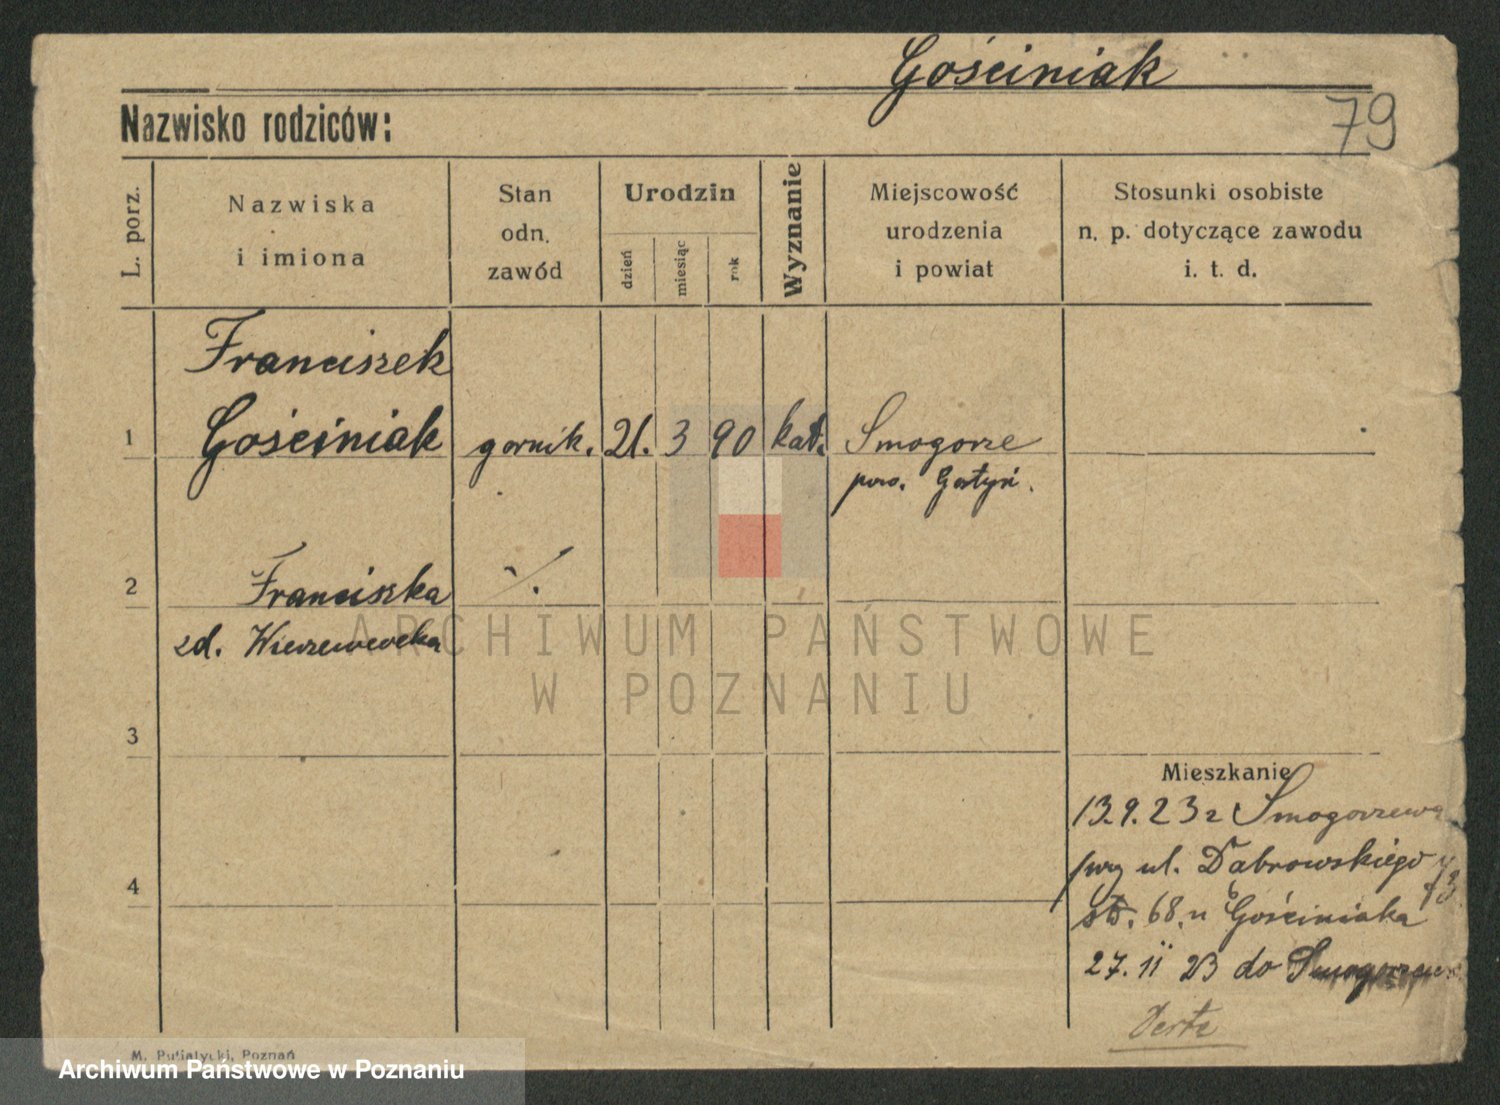 Gościniak
79
Nazwisko rodziców:
L. porz.
Nazwiska
i imiona
Stan
odn.
zawód
Urodzin
dzień
miesiąc
rok
Wyznanie
Miejscowość
urodzenia
i powiat
Stosunki osobiste
n. p. dotyczące zawodu
i. t. d.
Franciszek
1 Gościniak gornik. 21. 3 90 kat. Smogorze
pow. Gostyń.
2 Franciszka ٪.
zd.
ARCHIWUM PAŃSTWOWE
W POZNANIU
3
Mieszkanie
13.9.23 z Smogorzewa
przy ul. Dąbrowskiego
4
68. u Gościniaka
27. 11 23 do Smogorzewa
Verte
M. Putiatycki, Poznań
Archiwum Państwowe w Poznaniu